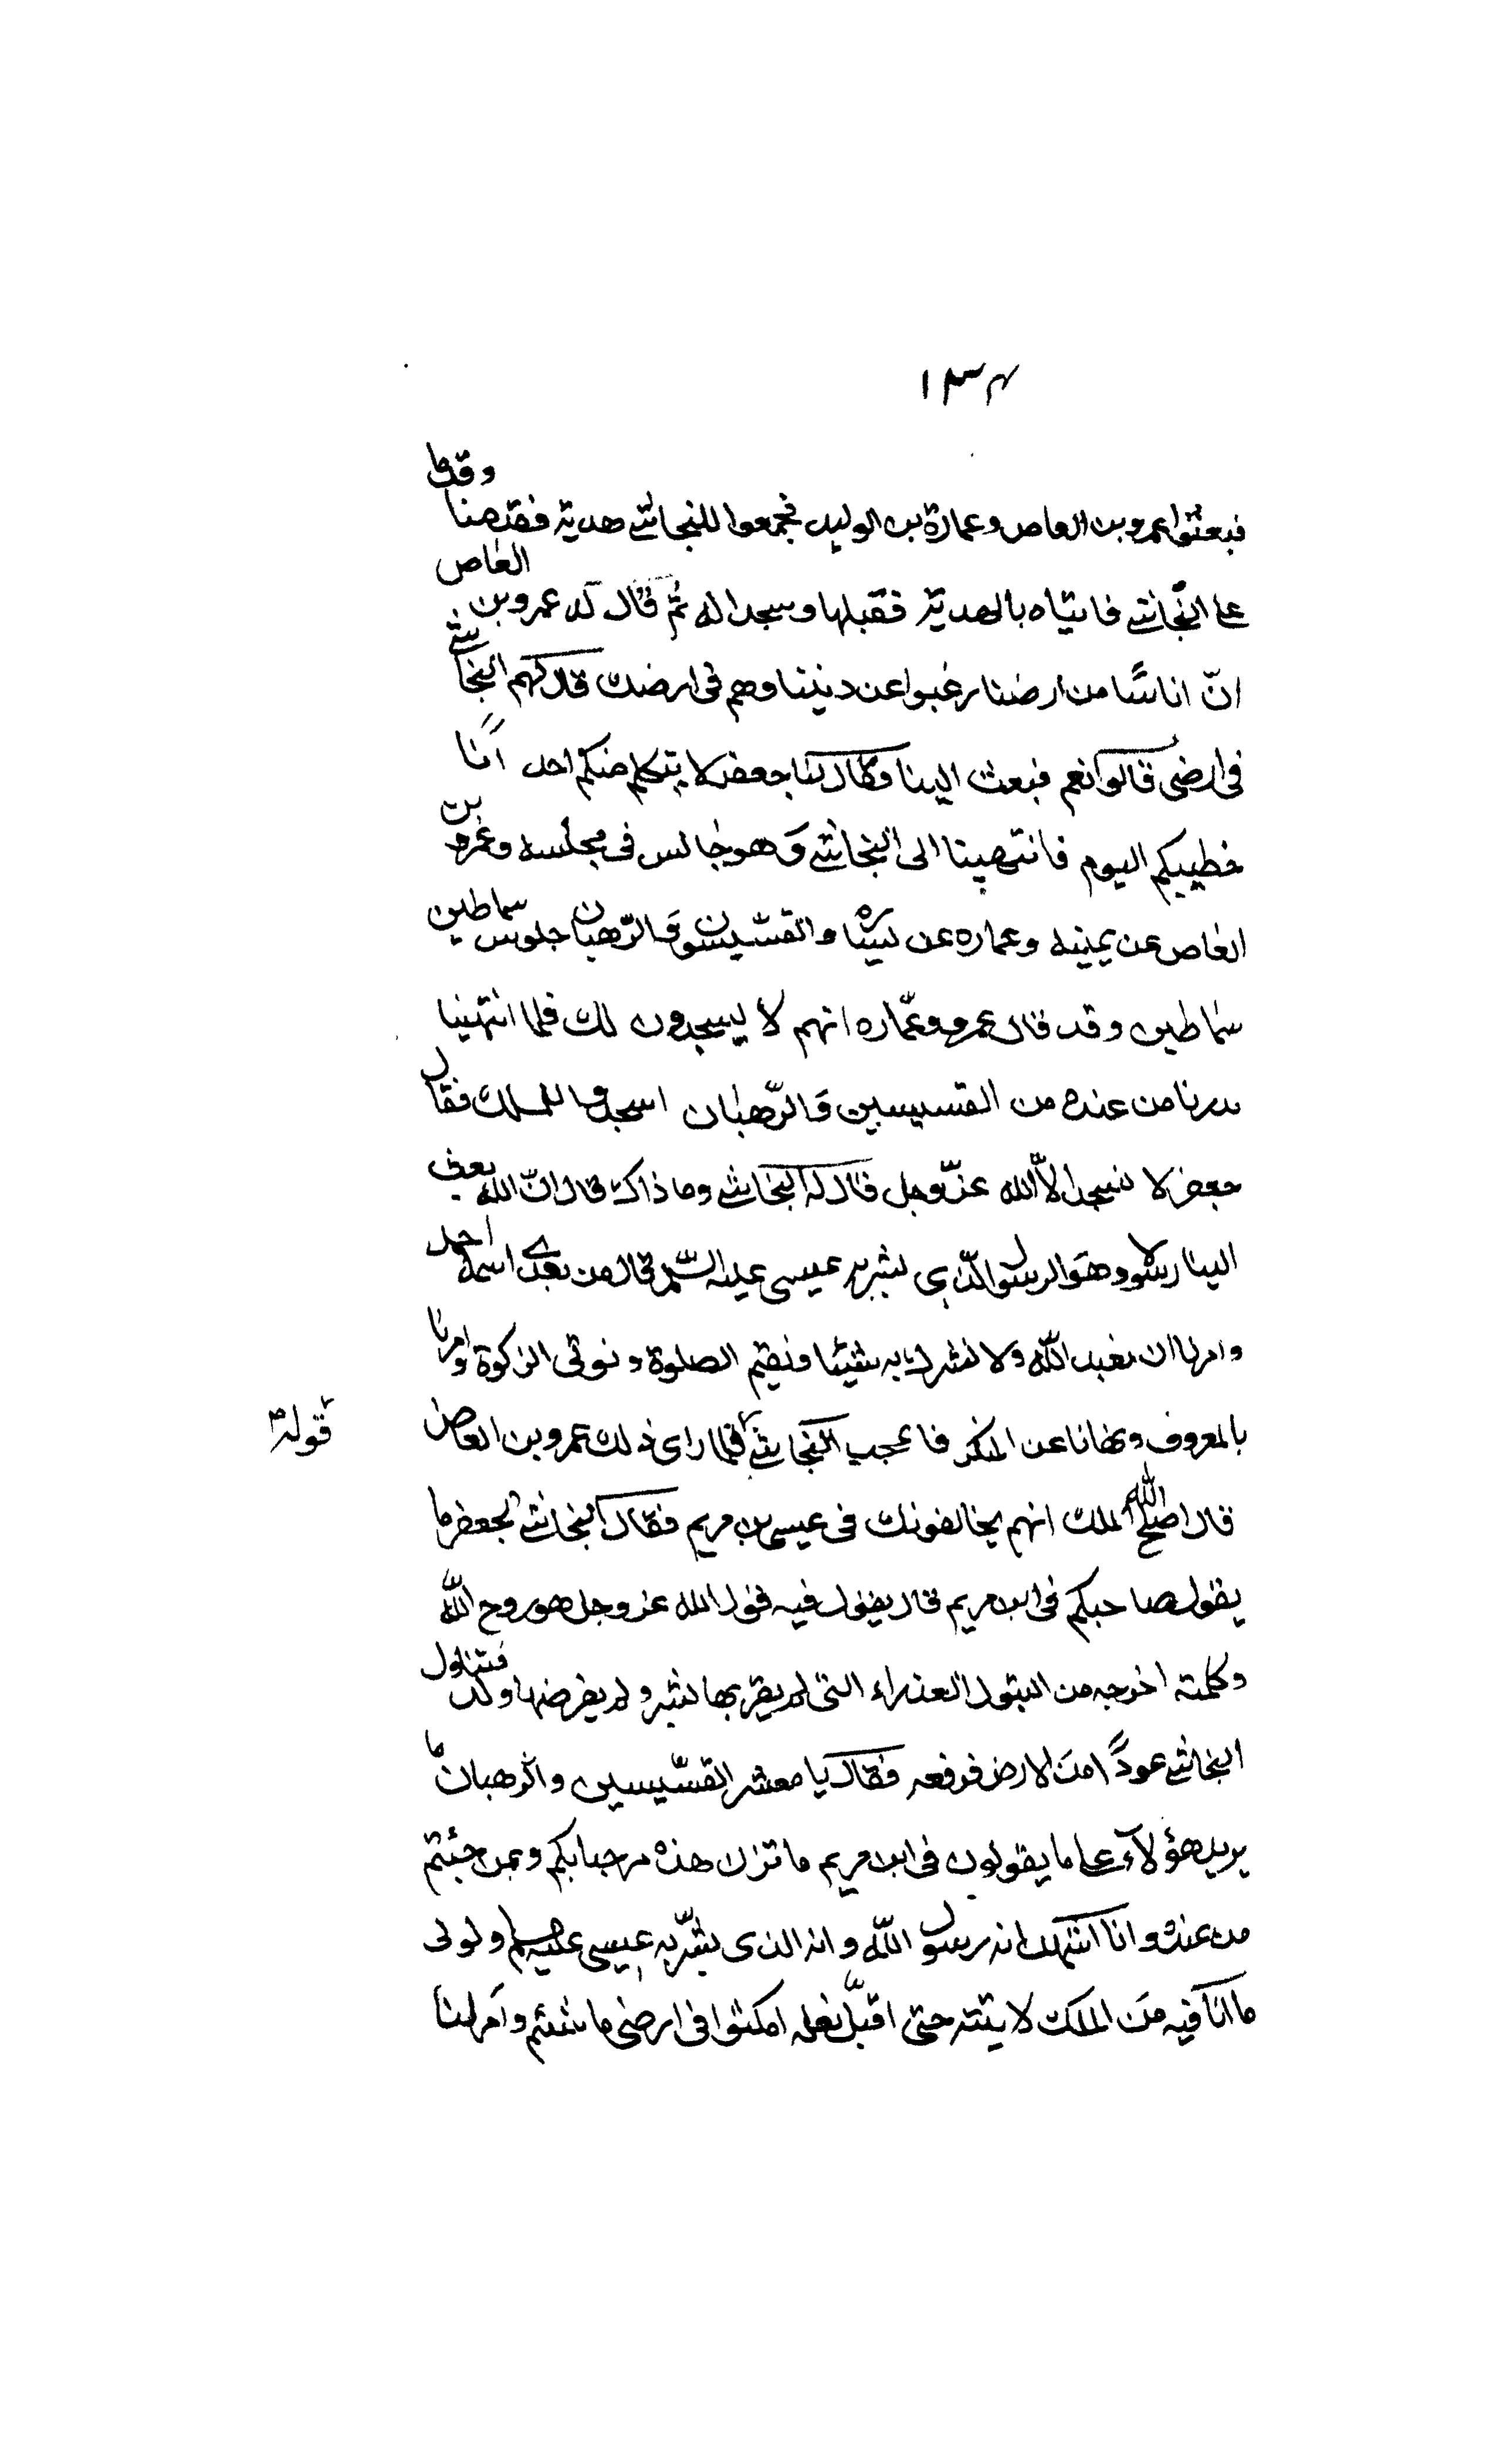 ١٣٤
فبعثوا عمرو بن العاص وعمارة بن الوليد فجمعوا للنجاشي هدية فقدمنا وقدما
على النجاشي فاتياه بالهدية فقبلها وسجدا له ثم قال له عمرو بن العاص
انّ اناسًا من ارضنا رغبوا عن ديننا وهم في ارضك قال لهم النجاشي
في ارضي قالوا نعم فبعث الينا فقال لنا جعفر لا يتكلم منكم احد انا
خطيبكم اليوم فانتهينا الى النجاشي وهو جالس في مجلسه وعمرو بن
العاص عن يمينه وعماره عن يساره والقسّيسون والرّهبان جلوس سماطين
سماطين وقد قال عمرو وعمّاره انهم لا يسجدون لك فلما انتهينا
بدرنا من عنده من القسيسين والرّهبان اسجدوا للملك فقال
جعفر لا نسجد الّا لله عزّ وجل قال له النجاشي وما ذاك قال انّ الله بعث
الينا رسولا وهو الرسول الّذي بشر به عيسى عليه السّلم قال من بعدي اسمه احمد
وامرنا ان نعبد الله ولا نشرك به شيئا ونقيم الصلوة ونوتي الزكوة وامرنا
بالمعروف ونهانا عن المنكر فاعجب النجاشي فلما راى ذلك عمرو بن العاص
قوله
قال اصلح الله الملك انهم يخالفونك في عيسى بن مريم فقال النجاشي لجعفر ما
يقول صاحبكم في ابن مريم قال يقول فيه قول الله عز وجل هو روح الله
وكلمته اخرجه من البتول العذراء التي لم يقربها بشر ولم يفرضها ولد فتناول
النجاشي عودًا من الارض فرفعه فقال يا معشر القسّيسين والرهبان ما
يريد هؤلاء على ما يقولون في ابن مريم ما تزن هذه مرحبا بكم وبمن جئتم
من عنده وانا اشهد انه رسول الله وانه الذي بشّر به عيسى عليه السلم ولولى
ما انا فيه من الملك لاتيته حتى اقبّل نعله امكثوا في ارضي ما شئتم وامر لنا